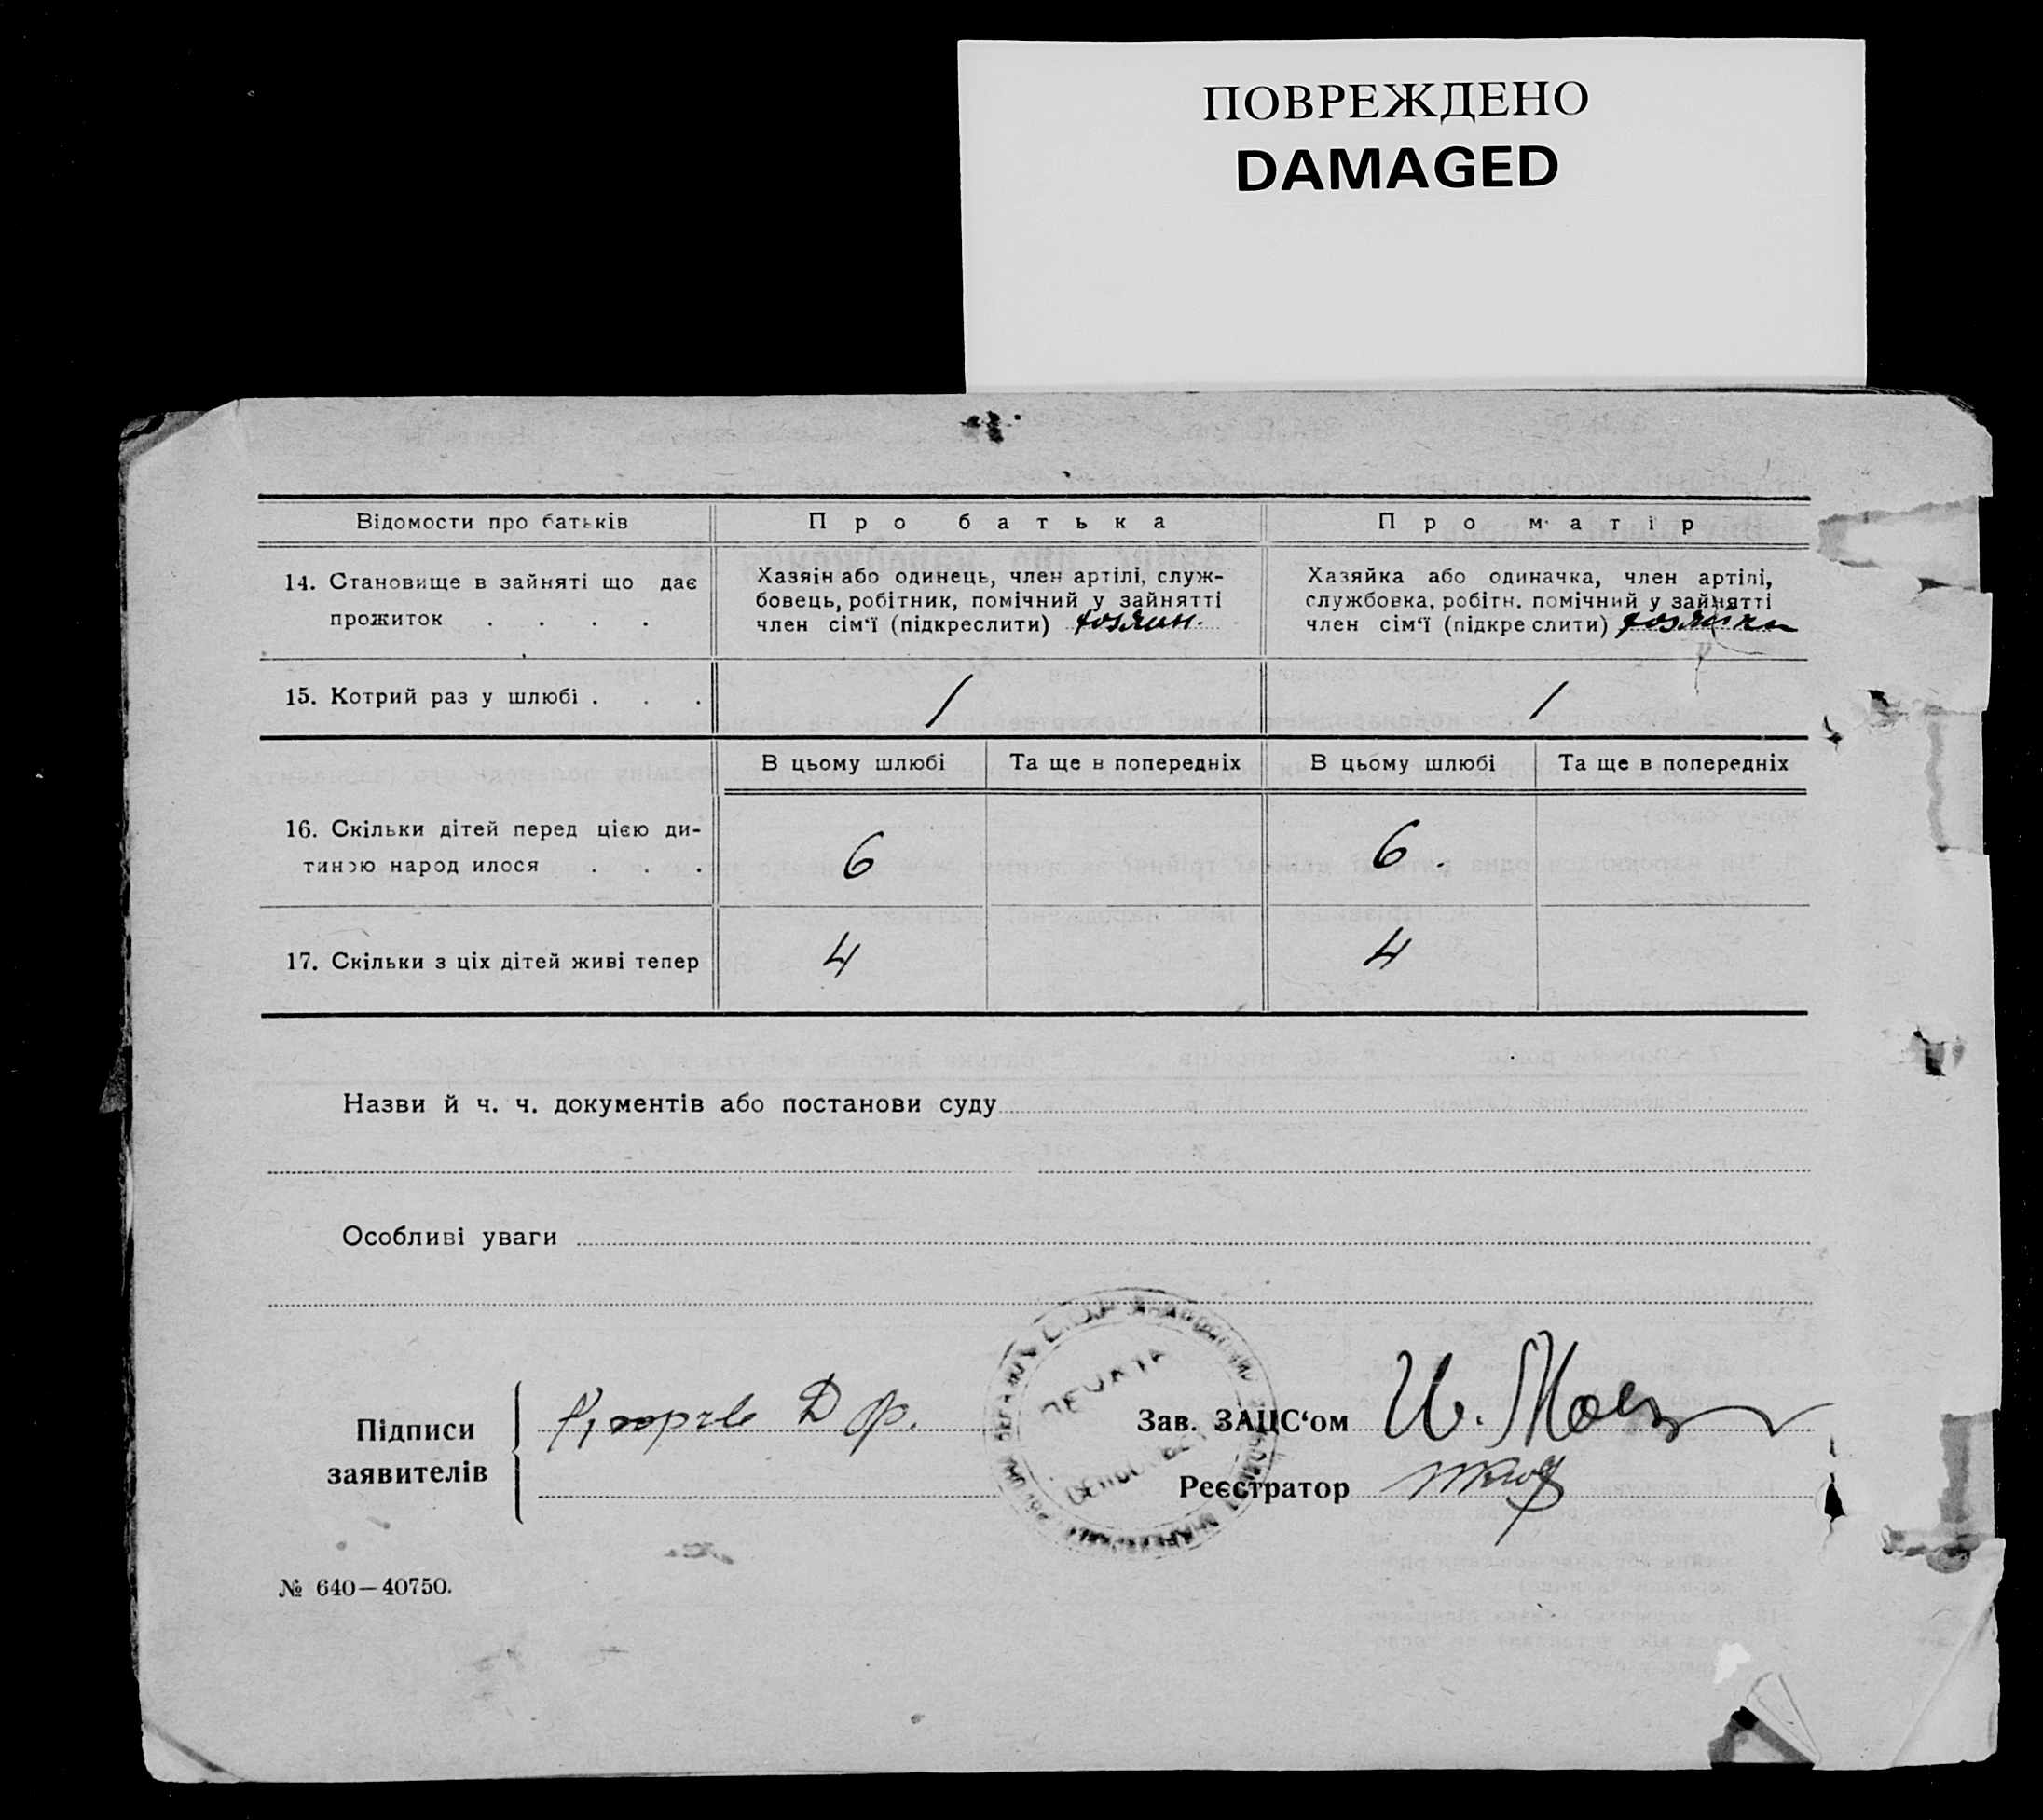 ПОВРЕЖДЕНО
DAMAGED
Відомости про батьків
Про батька
Про матір
14. Становище в зайняті що дає
прожиток . . . .
Хазяін або одинець, член артілі, служ-
бовець, робітник, помічний у зайнятті
член сім‘ї (підкреслити) хозяин.
Хазяйка або одиначка, член артілі,
службовка, робітн. помічний у зайнятті
член сім‘ї (підкреслити) хозяйка
15. Котрий раз у шлюбі . . .
1
1
В цьому шлюбі
Та ще в попередніх
В цьому шлюбі
Та ще в попередніх
16. Скільки дітей перед цією ди-
тиною народилося . . .
6
6.
17. Скільки з ціх дітей живі тепер
4
4
Назви й ч. ч. документів або постанови суду
Особливі уваги
Підписи
заявителів
Д Ф.
ПЕЧАТА
Зав. ЗАЦС‘ом
Реєстратор
№ 640—40750.